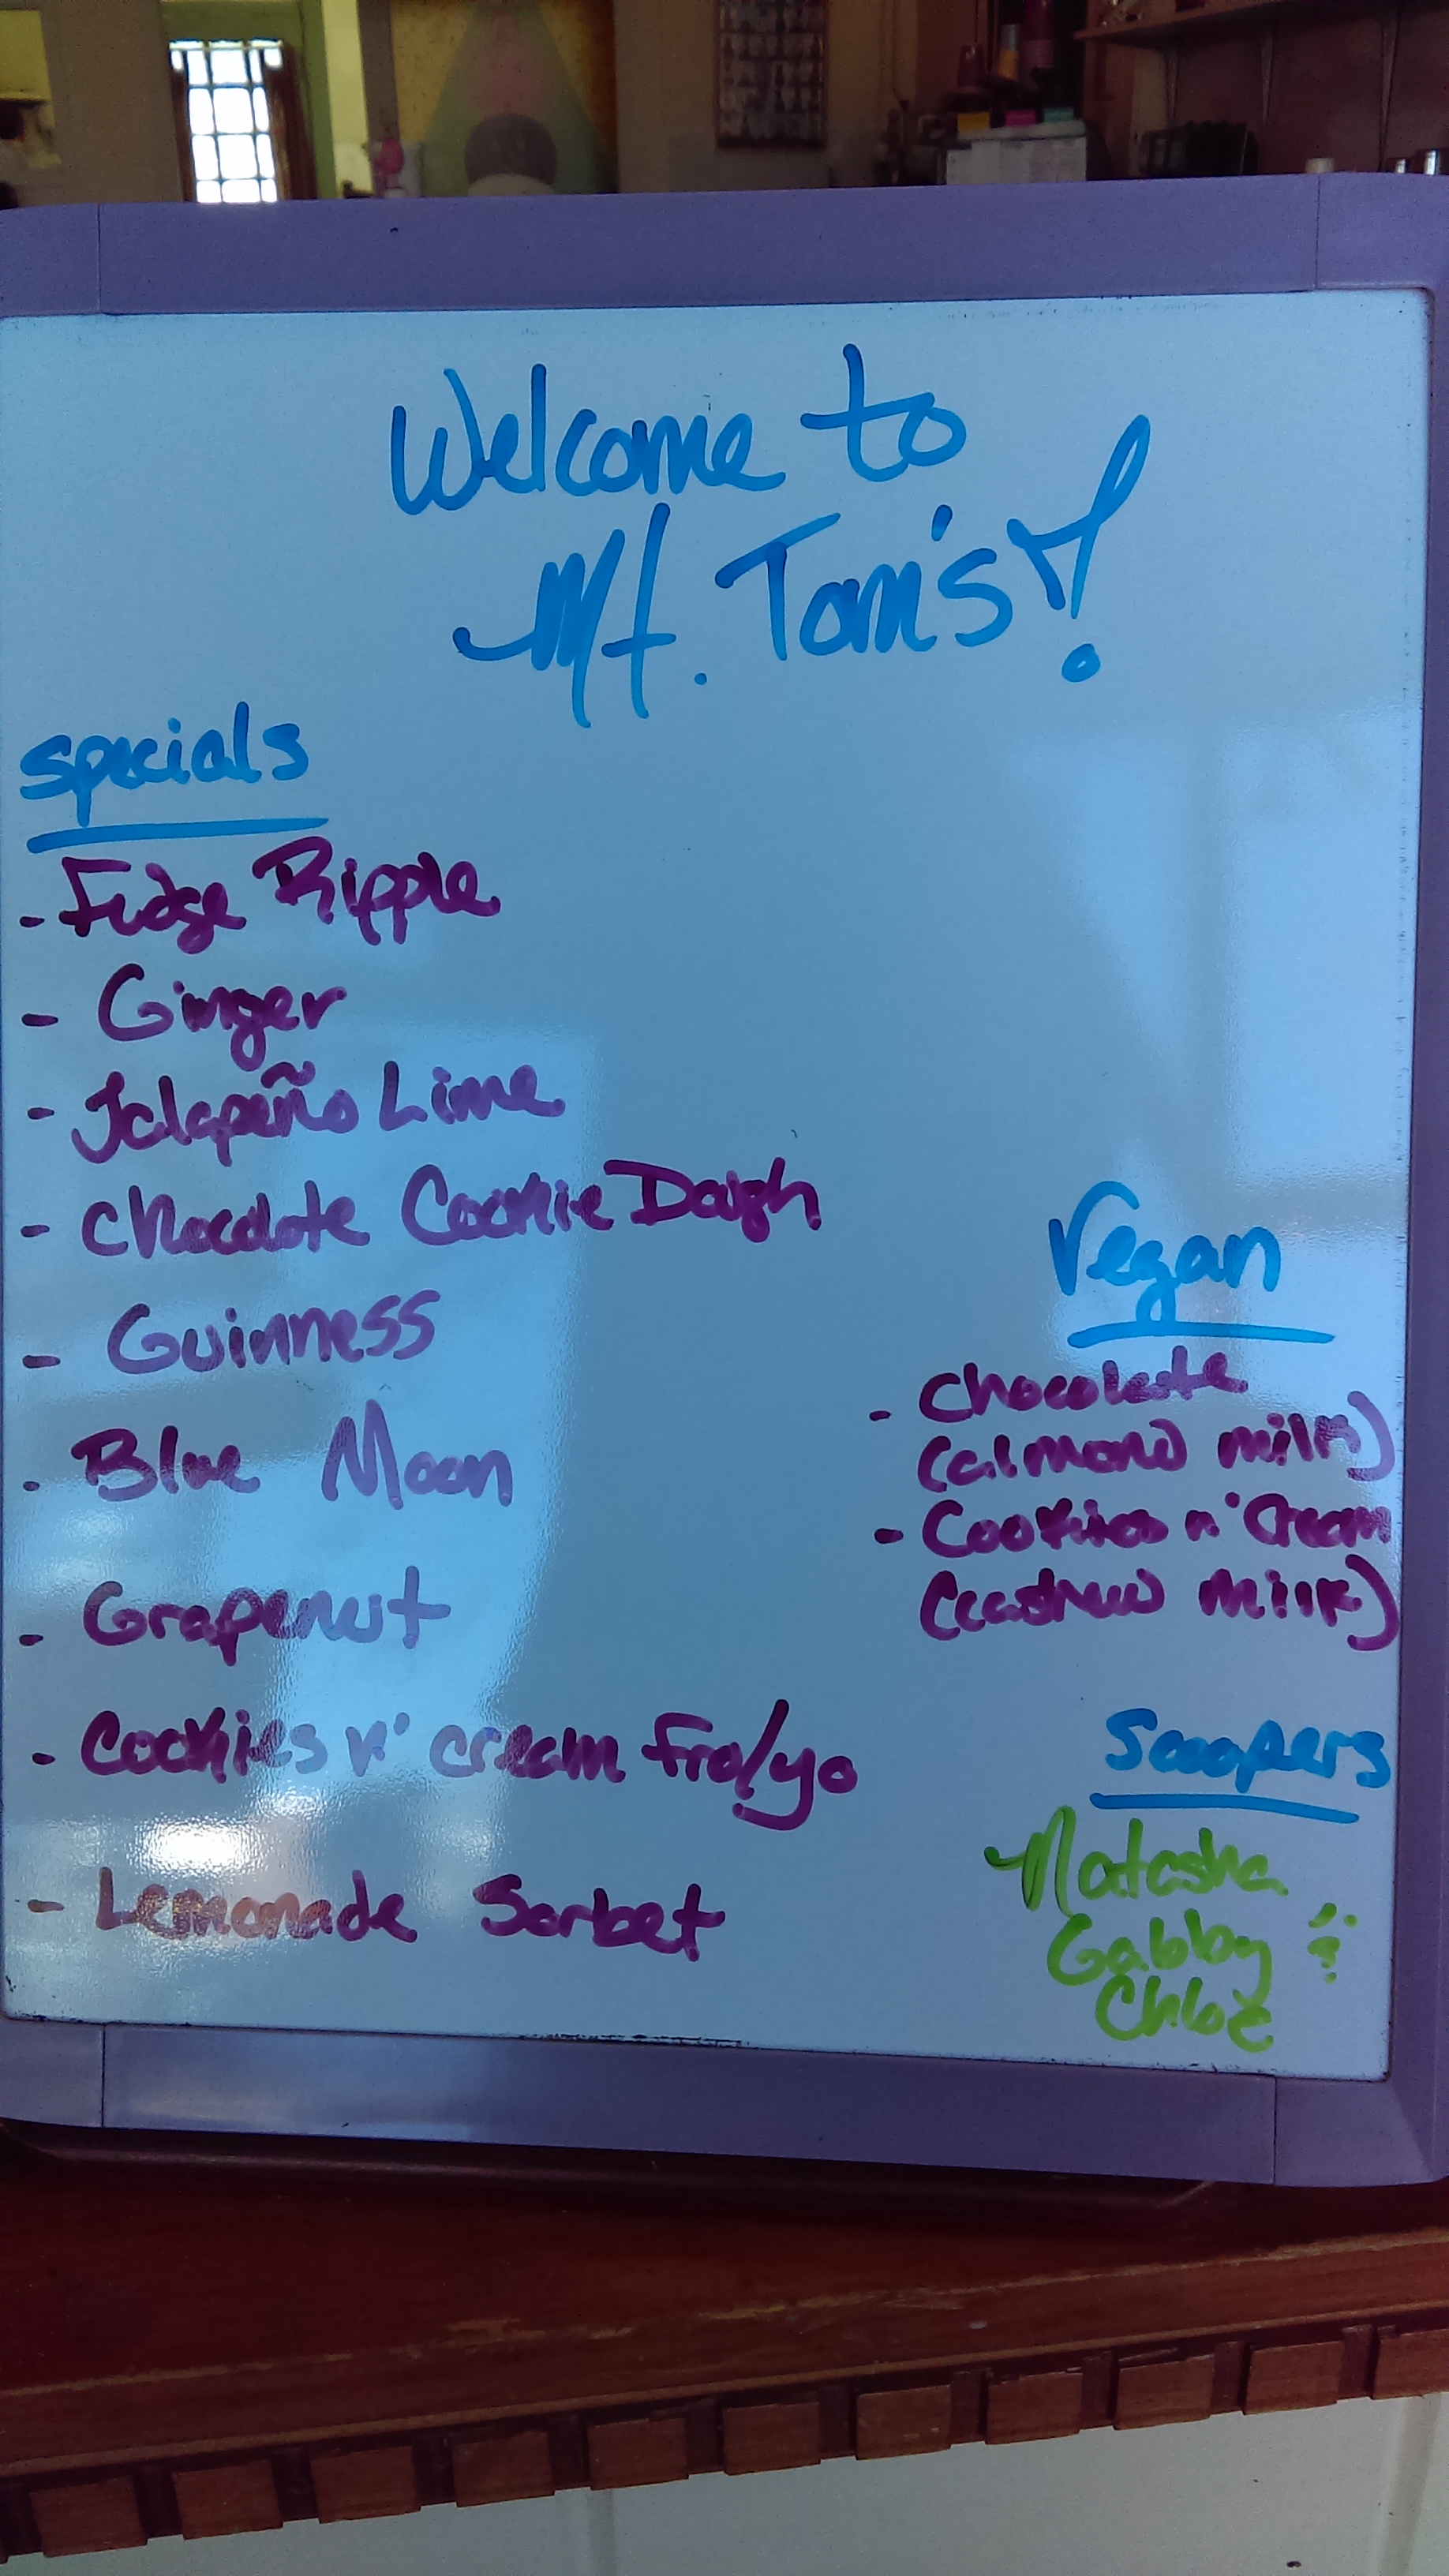 Welcome to
Mt. Tom's!
specials
- Fudge Ripple
- Ginger
- Jalapeño Lime
- Chocolate Cookie Dough
- Guinness
- Blue Moon
- Grapenut
- Cookies n' cream fro/yo
- Lemonade Sorbet
Vegan
- Chocolate
(almond milk)
- Cookies n' Cream
(cashew milk)
Scoopers
Natasha
Gabby &
Chloe